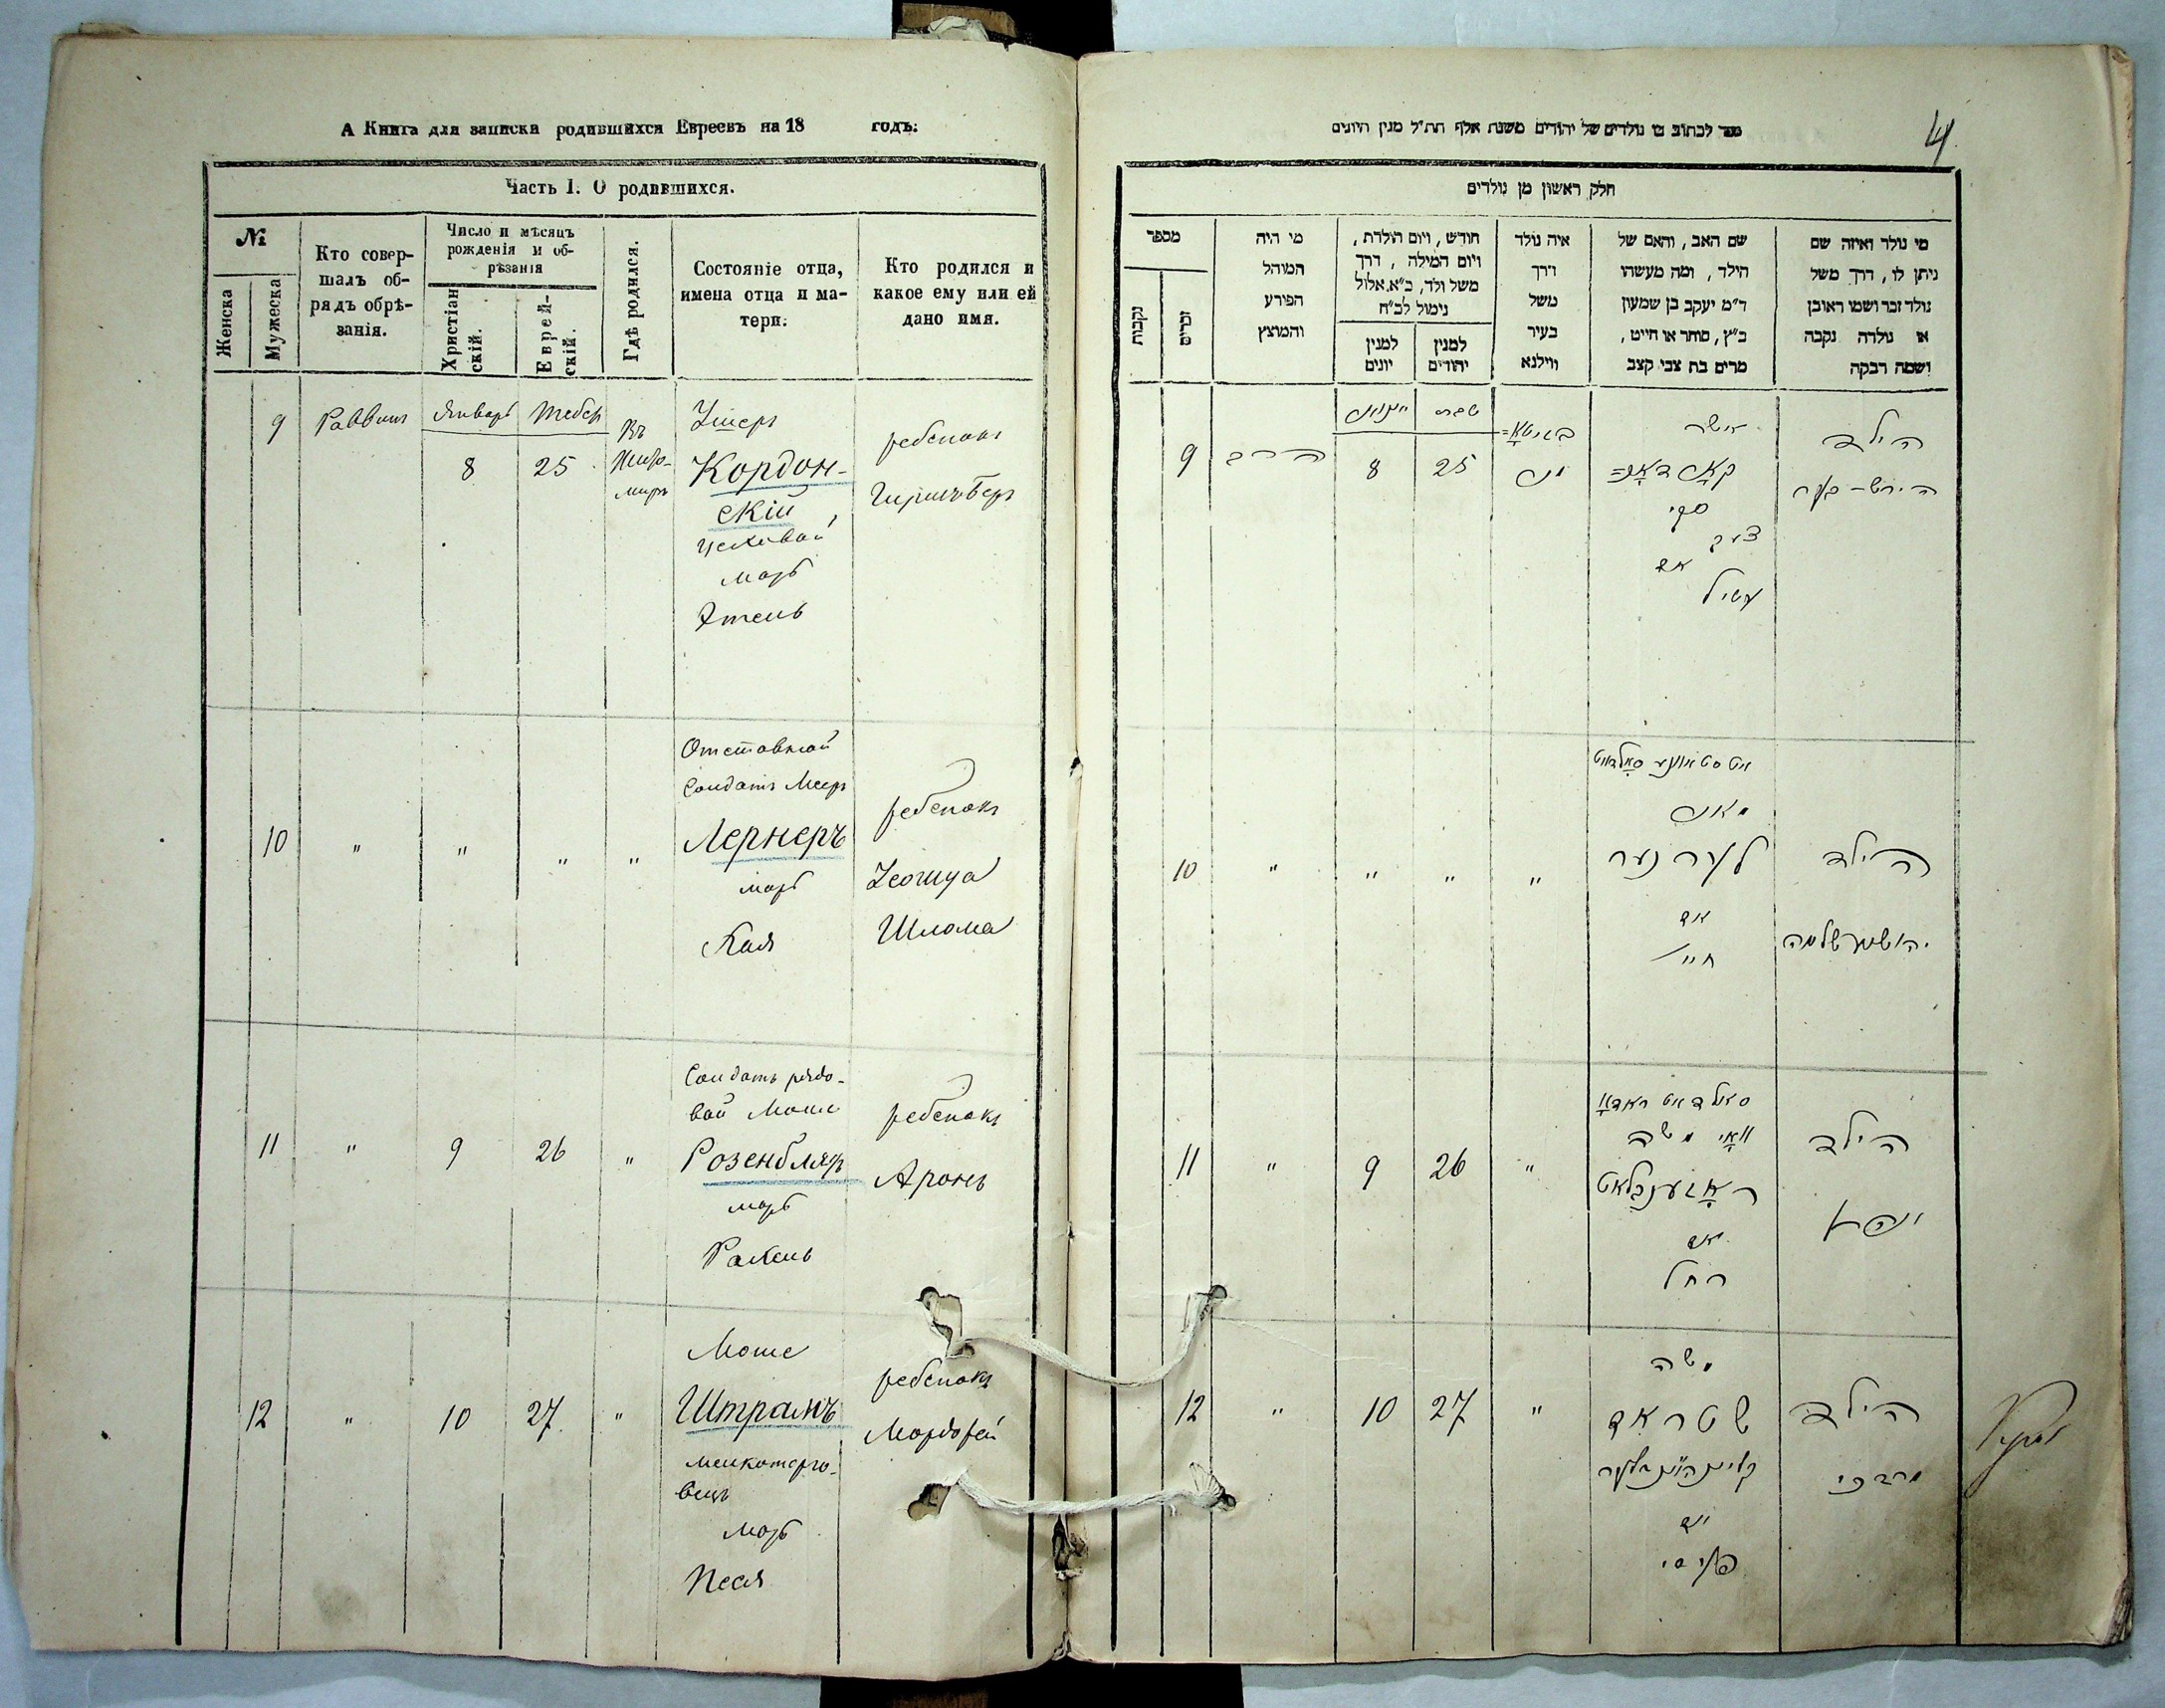 А Книга для записки родившихся Евреевъ на 18 годъ:
Часть I. О родившихся.
№
Женска
Мужеска
Кто совер-
шалъ об-
рядъ обрѣ-
занія.
Число и мѣсяцъ
рожденія и об-
рѣзанія
Христіан
скій.
Еврей-
скій.
Гдѣ родился.
Состояніе отца,
имена отца и ма-
тери.
Кто родился и
какое ему или ей
дано имя.
9
Раввинъ
Январь
8
25
Въ
Жито-
миръ
Ушеръ
Кордон-
скій
цеховой
мать
Этель
ребенокъ
Гиршъ-Беръ
10
"
"
"
"
Отставной
Солдатъ Меер
Лернеръ
мать
Хая
ребенокъ
Іеошуа
Шлома
11
"
9
26
"
Солдатъ рядо-
вой Моше
Розенблят
мать
Рахель
ребенокъ
Аронъ
12
"
10
27.
"
Моше
Штрамъ
мелкоторго-
вецъ
мать
Песя
ребенокъ
Мордхей
ספר לכתוב בו נולדים של יהודים משנת אלף תת״ל מנין היונים
4
חלק ראשון מן נולדים
מספר
נקבות
זכרים
מי היה
המוהל
הפורע
והמוצץ
חודש, ויום הולדת,
ויום המילה, דרך
משל ולד, כ״א אלול
נימול לכ״ח
למנין
יונים
למנין
יהודים
איה נולד
דרך
משל
בעיר
ווילנא
שם האב, והאם של
הילד, ומה מעשהו
ד״מ יעקב בן שמעון
כ״ץ, סוחר או חייט,
מרים בת צבי קצב
מי נולד ואיזה שם
ניתן לו, דרך משל
נולד זכר ושמו ראובן
או נולדה נקבה
ושמה רבקה
9
הרב
8
25
אשר
קאָרדאָנ=
סקי
אם
עטיל
הילד
הירש-בער
10
"
"
"
"
מאיר
לערנער
אם
חי׳
הילד
יהושע שלמה
11
"
9
26
"
סאלדאט ראדאָ
וואָי משה
ראָזענבלאט
אם
רחל
הילד
12
"
10
27
"
משה
שטראם
אם
פעסי
הילד
מרדכי